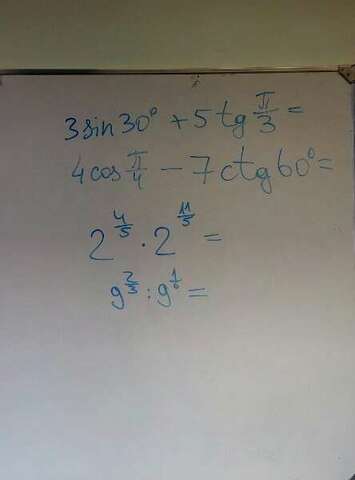 3sin30° + 5tg π/3 =
4cos π/4 − 7ctg60° =
2^(4/5) · 2^(11/5) =
9^(2/3) : 9^(1/6) =